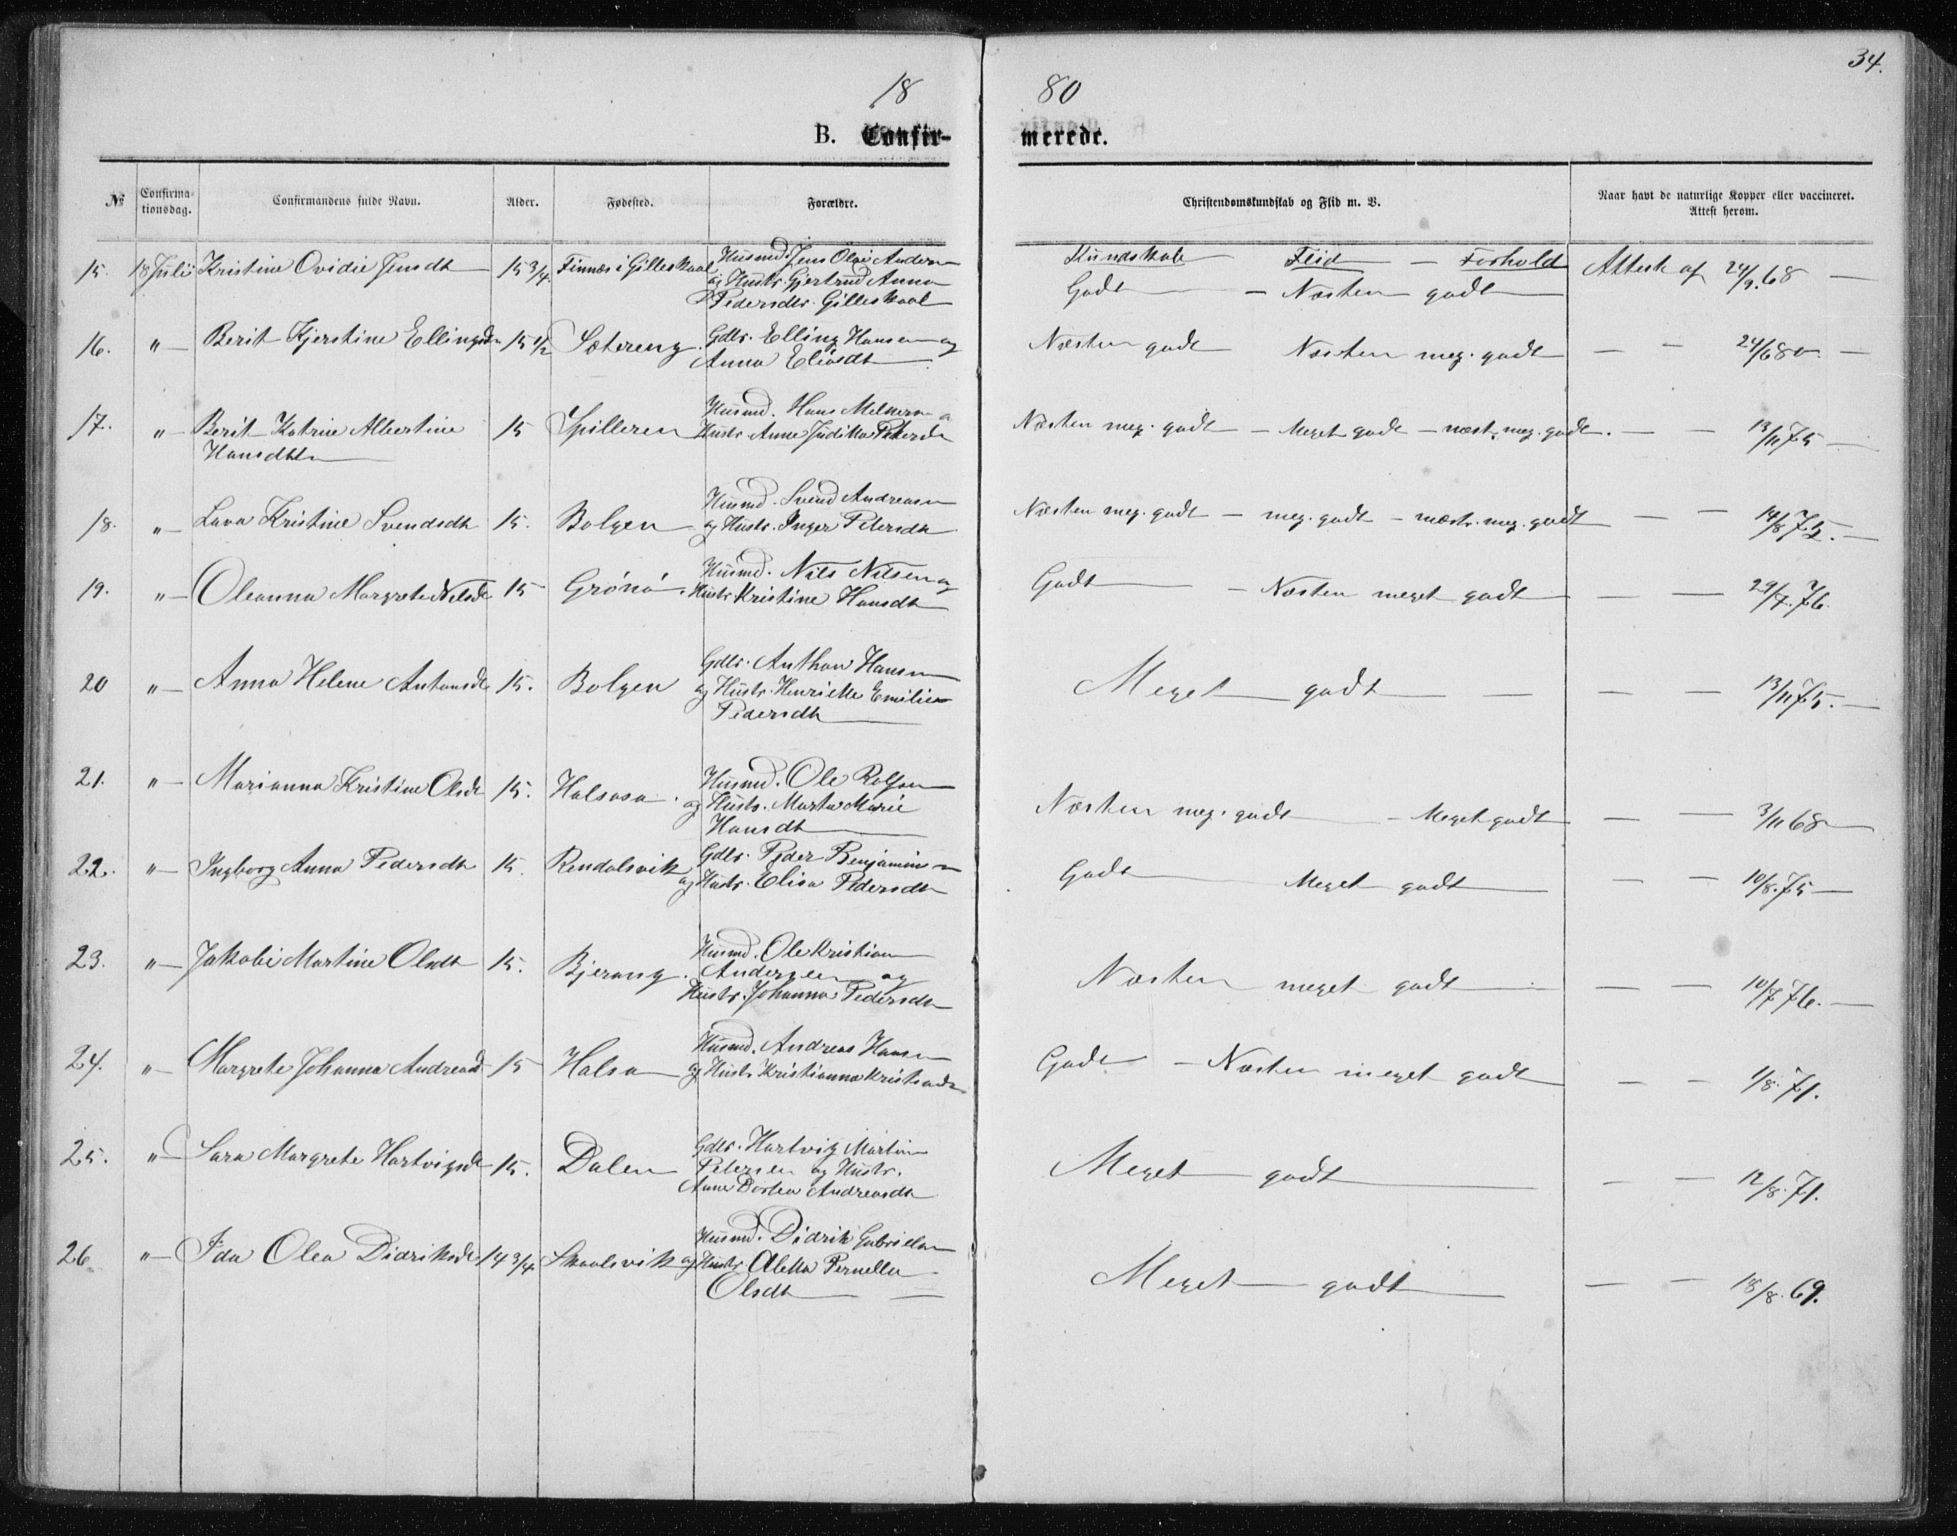 34.
18 80
B. Confirmerede.
№ Confirmationsdag. Confirmandens fulde Navn. Alder. Fødested. Forældre. Christendomskundskab og Flid m. V. Naar havt de naturlige Kopper eller vaccineret. Attest herom.
15. 18 Juli Kristine Ovidie Jensdt 15 3/4. Finnæs i Gilleskaal Husmd. Jens Olai Andersn
og Hustr. Gjertrud Anna
Pedersdtr. Gilleskaal
Kundskab Flid Forhold
Godt Næsten godt Attest af 24/9.68
16. " Berit Kjerstine Ellingsdtr 15 1/2 Sætereng Gdbr. Elling Hansen og
Anna Eliasdt
Næsten godt Næsten meg. godt 24/680
17. " Berit Katrine Albertine 15 Spilleren Husmd. Hans
Hansdtr Hustr Anne Pedersd
Næsten meg. godt Meget godt næst. meg. godt. 13/1175
18. " Lava Kristine Svendsdt 15. Bolgen Husmd. Svend Andreasen
og Hustr. Inger Petersdtr
Næsten meg. godt meg. godt næst. meg. godt 14/8 75.
19. " Oleanna Margrete Nilsdt 15 Grønø. Husmd. Nils Nilsen og
Hustr Kristine Hansdt
Godt Næsten meget godt 29/7.76.
20 " Anna Helene Antonsdt 15. Bolgen Gdbr. Anthon Hansen
og Hustr. Henrikke Emilie
Pedersdt
Meget godt 13/1175.
21. " Marianna Kristine Olsdt 15. Halsosa. Husmd. Ole Rolfsen
og Hustr. Marta Marie
Hansdt
Næsten meg. godt Meget godt 3/1168
22. " Ingborg Anna Pedersdt 15. Rendalsvik Gdbr. Peder Benjaminsen
og Hustr. Elisa Pedersdt
Godt Meget godt 10/8.75
23. " Jakobi Martine Olsdt 15. Bjerang. Husmd. Ole Kristian
Andersen og
Hustr. Johanna Pedersdt
Næsten meget godt 10/7 76.
24. " Margrete Johanna Andreasd 15 Halsa Husmd. Andreas Hansen
og Hustr Kristianna Kristensdtr
Godt Næsten meget godt 1/8.71.
25. " Sara Margrete Hartvigsdt 15. Dalen Gdbr. Hartvig Martin
Petersen og Hustr.
Anne Dortea Andreasdt
Meget godt 12/8.71.
26 " Ida Olea Didriksdt 14 3/4 Skaalsvik Husmd. Didrik Gabrielsen
og Hustr Aletta Pernella
Olsdt
Meget godt 18/8.69.